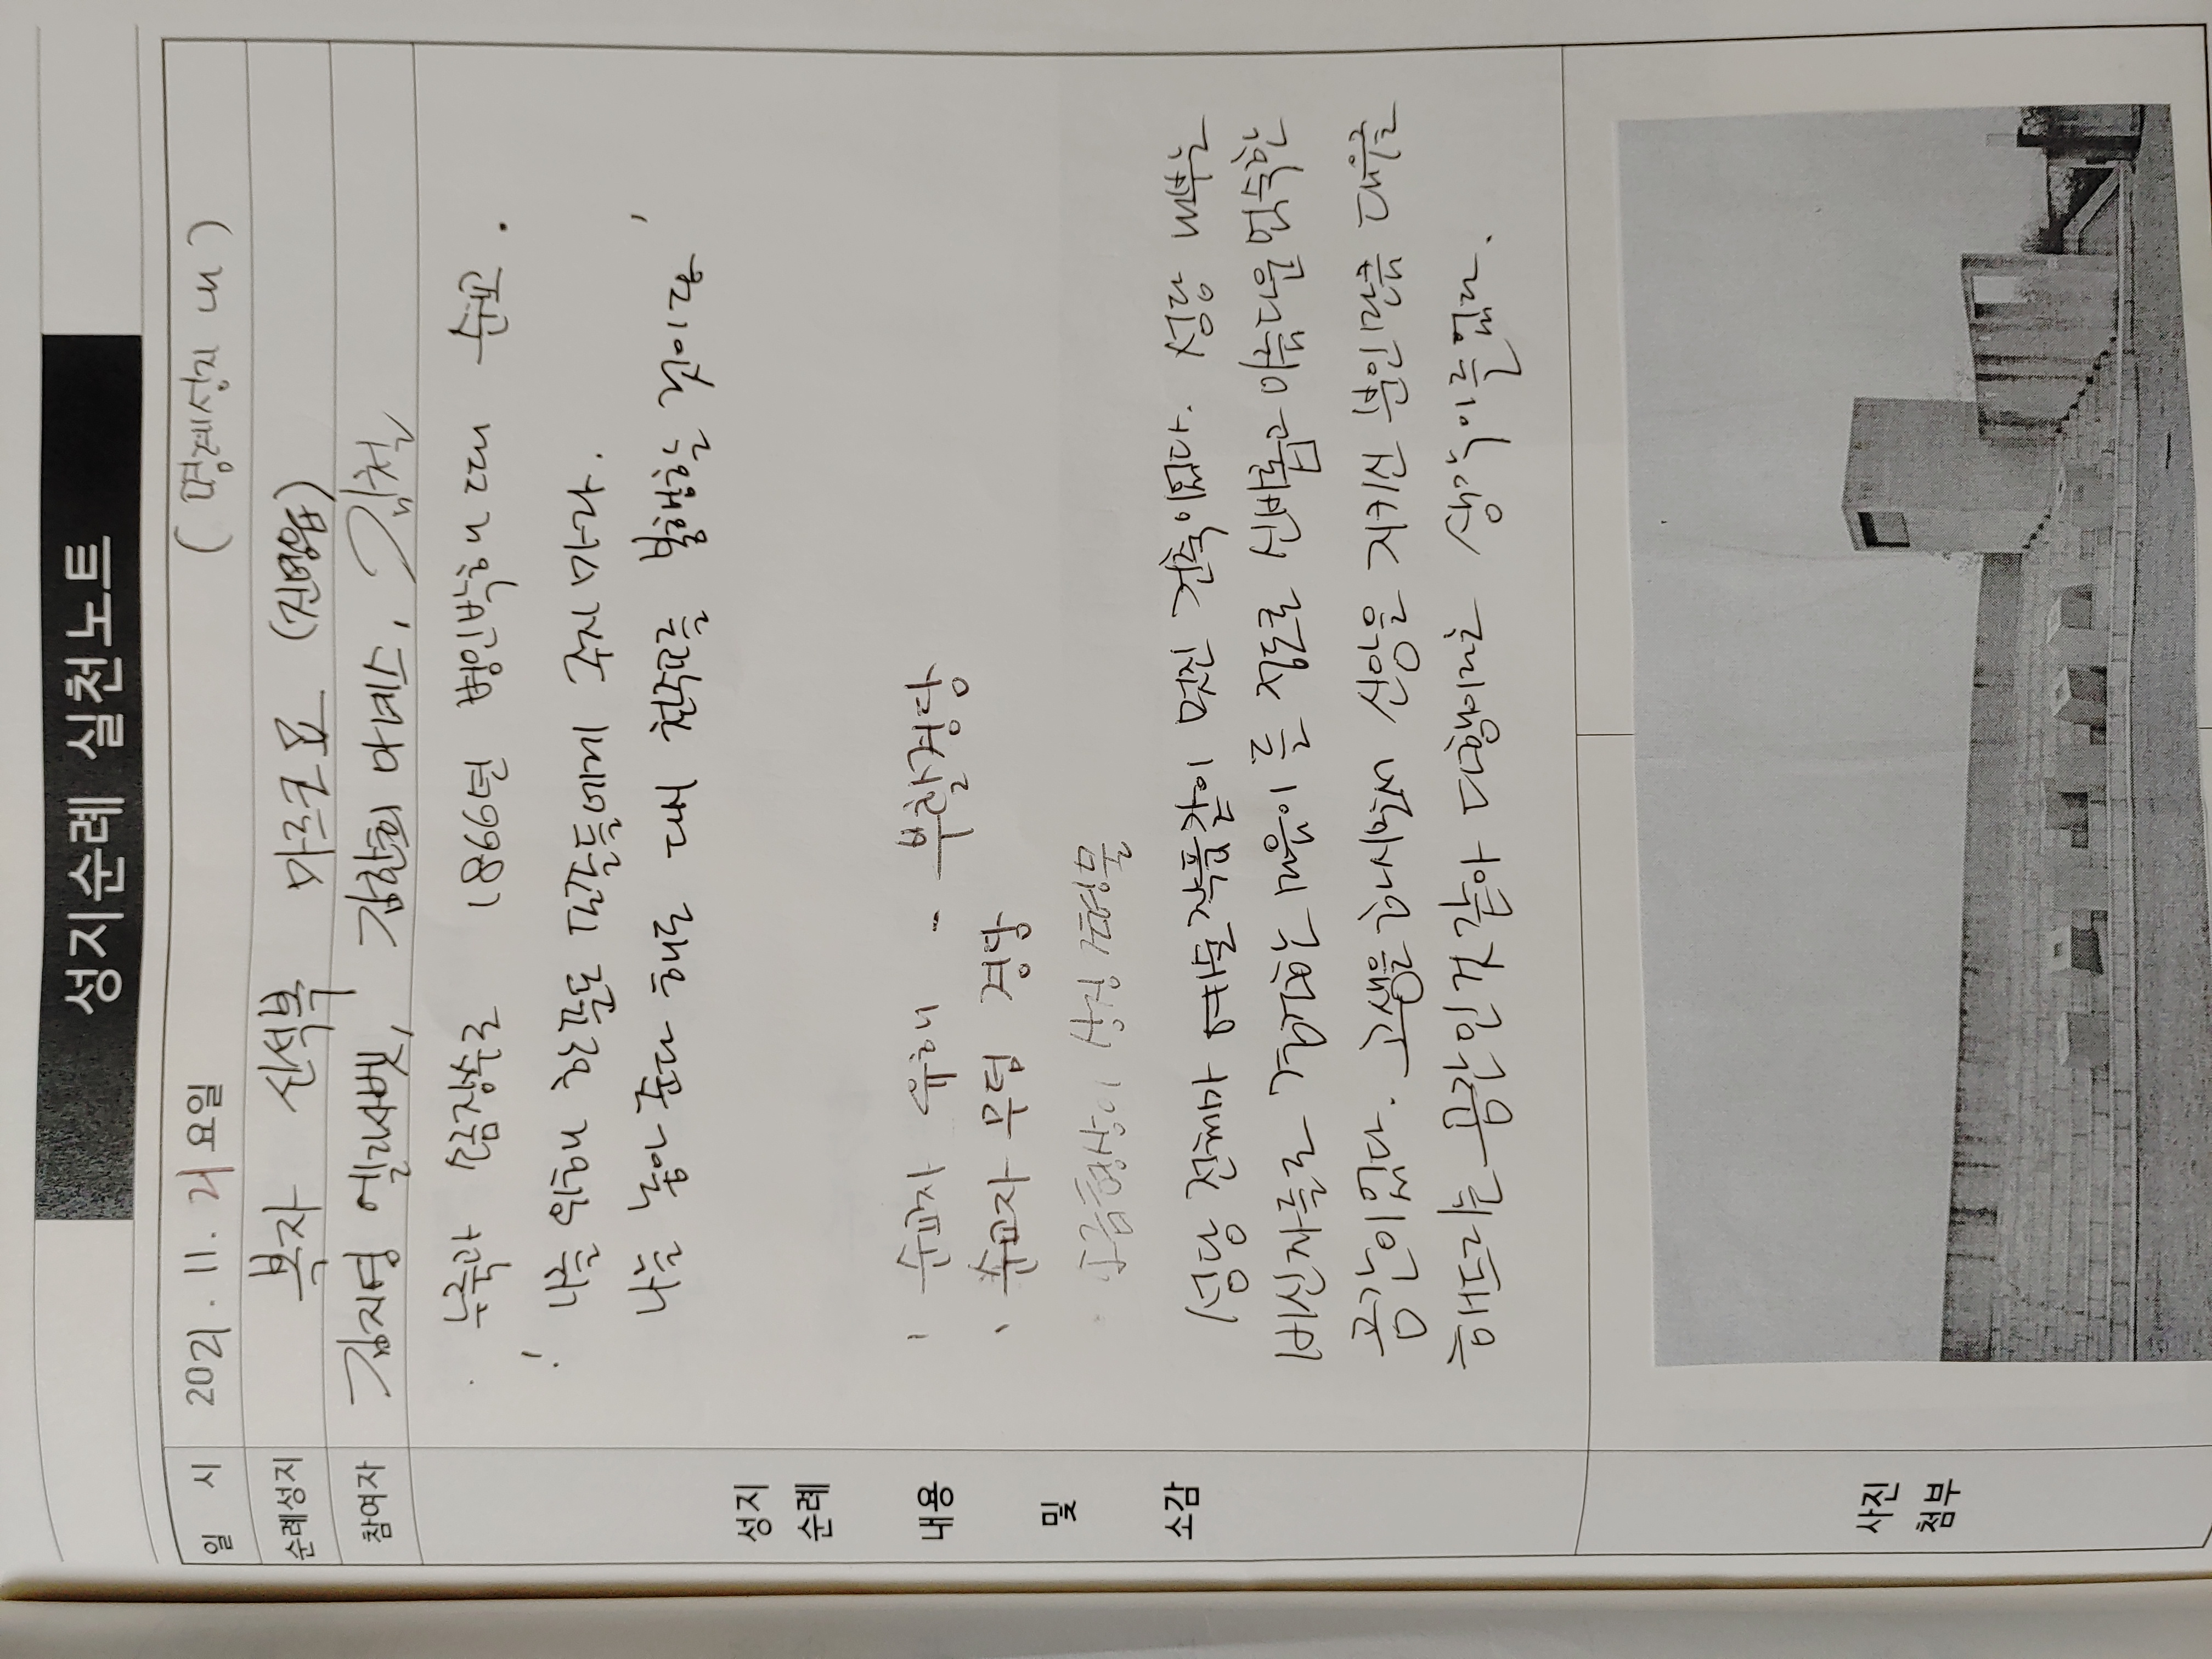 성지순례 실천노트
일 시 2021. 11. 21 요일 (명례성지 내)
순례성지 복자 신석복 마르코 묘 (진영읍)
참여자 김지영 엘리사벳, 김한희 아녜스, 김철
· 누룩과 소금장수로 1866년 병인박해 때 순교.
·' 나를 위해 한푼도 포졸들에게 주지 마라.
나를 놓아 준다 해도 다시 천주교를 봉행할 것이다'
성지
순례
내용
및
소감
· 순교자 유해 - 부활경당
· 순교자 무덤 경당
· 소금형상의 상징 조형물
성당 전체가 예술작품같이 멋진 건축이었다. 성당 내부는
비신자들로 경건한 마음이 들 정도로 신비롭고 아름다운 엄숙한
공간이었다. 고생을 하시면서 신앙을 지키신 분인만큼 대우를
해드리는 공간인것 같아 다행이라는 생각이 들었다.
사진
첨부